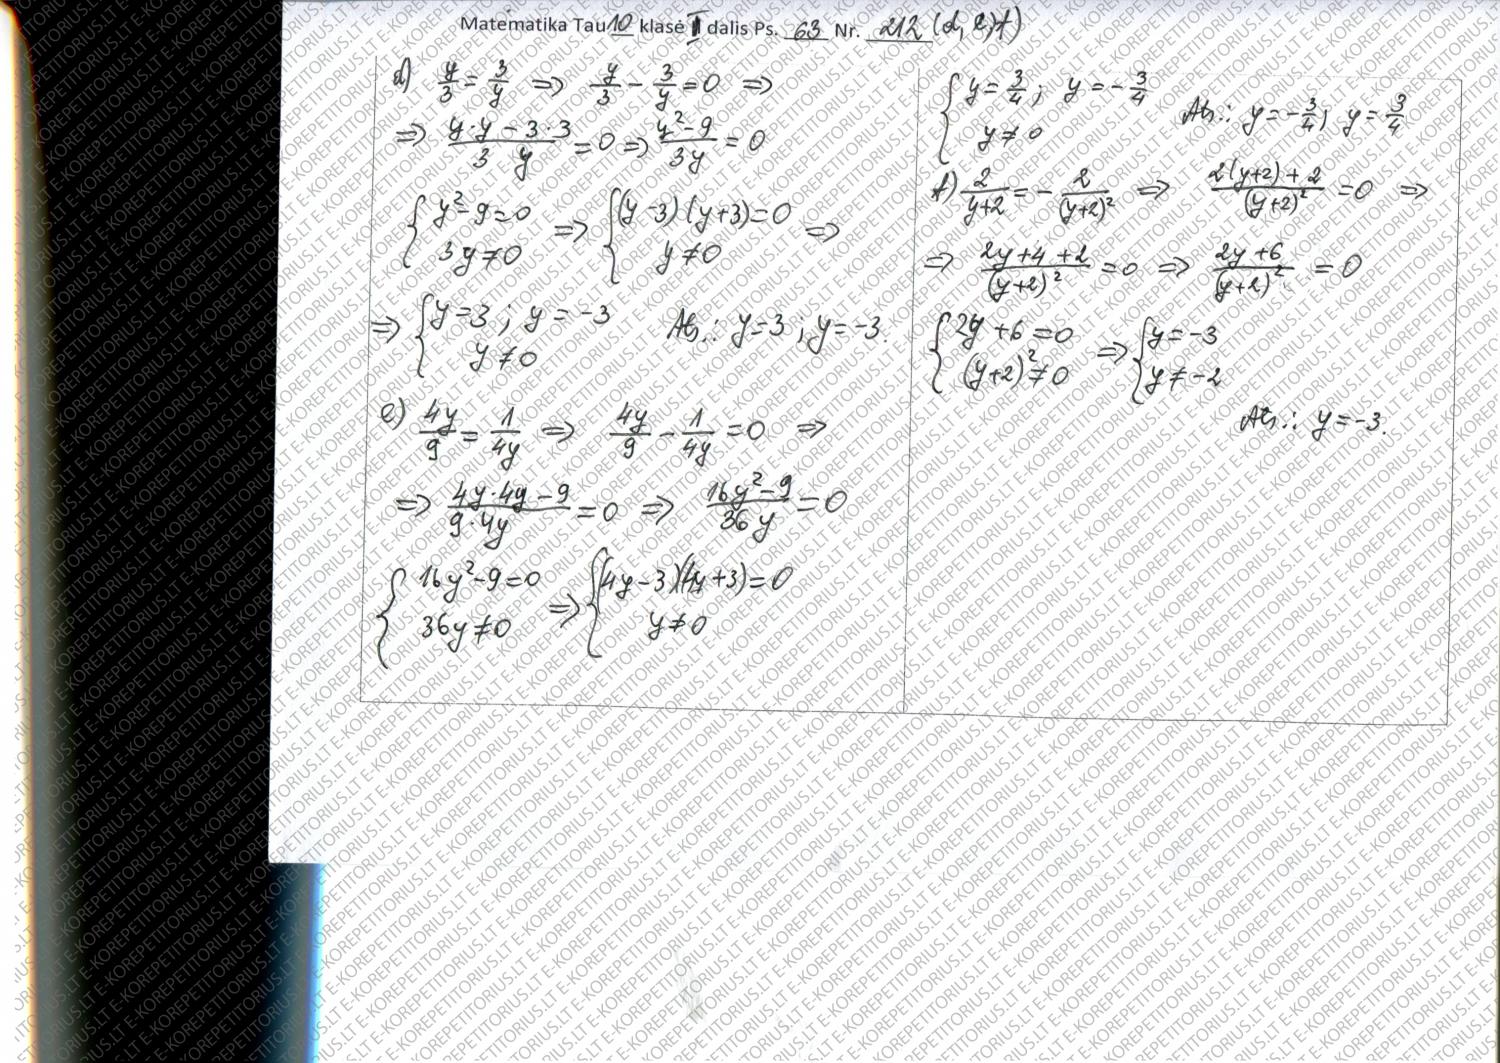 Matematika Tau 10 klasė II dalis Ps. 63 Nr. 212 (d, e, f)
d) y/3 = 3/y ⇒ y/3 - 3/y = 0 ⇒
⇒ (y·y - 3·3)/(3 y) = 0 ⇒ (y² - 9)/(3y) = 0
{ y² - 9 = 0 ⇒ { (y - 3)(y + 3) = 0 ⇒
3y ≠ 0 y ≠ 0
⇒ { y = 3 ; y = -3 Ats.: y = 3 ; y = -3.
y ≠ 0
e) 4y/9 = 1/4y ⇒ 4y/9 - 1/4y = 0 ⇒
⇒ (4y·4y - 9)/(9·4y) = 0 ⇒ (16y² - 9)/(36y) = 0
{ 16y² - 9 = 0 ⇒ { (4y - 3)(4y + 3) = 0
36y ≠ 0 y ≠ 0
{ y = 3/4 ; y = -3/4 Ats.: y = -3/4 ; y = 3/4
y ≠ 0
f) 2/(y+2) = - 2/(y+2)² ⇒ (2(y+2) + 2)/(y+2)² = 0 ⇒
⇒ (2y + 4 + 2)/(y+2)² = 0 ⇒ (2y + 6)/(y+2)² = 0
{ 2y + 6 = 0 ⇒ { y = -3
(y+2)² ≠ 0 y ≠ -2
Ats.: y = -3.
E-KOREPETITORIUS.LT